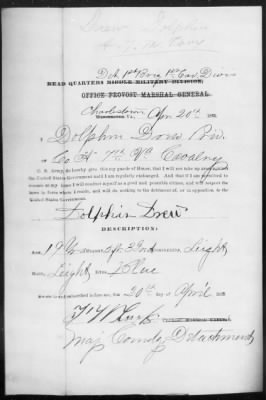 Drew Dolphin
Det 1st Brig 1st Cav Divis
HEAD QUARTERS MIDDLE MILITARY DIVISION,
OFFICE PROVOST MARSHAL GENERAL.
Charlestown Va., Apr 20th 1865.
I, Dolphin Drew Pri.
Co H 7th Va Cavalry
U. S. Army, do hereby give, this my parole of Honor, that I will not take
the United States Government until I am regularly exchanged. And that if I am permitted to
remain at my home I will conduct myself as a good and peaceable citizen, and will respect the
laws in force where I reside, and will do nothing to the detriment of, or in opposition to the
United States Government.
Dolphin Drew
DESCRIPTION:
Light
Light Blue
before me, this 20th day of April 1865
Maj Comdg Detachment